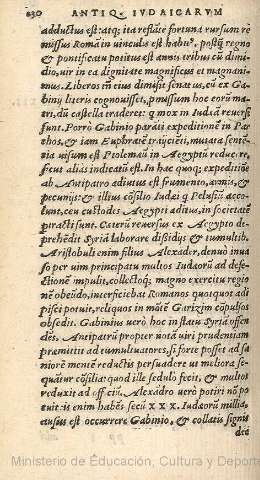 830 ANTIQ. IVDAICARVM
adductus est: atq; ita resistēte fortuna rursum re
missus Romā in vinculis est habitꝰ, postq̄ regno
& pontificatu potitus est annis tribus cū dimi-
dio, vir in ea dignitate magnificus et magnani-
mus. Liberos tn̄ eius dimisit senatus, cū ex Ga-
biny literis cognouisset, p̄missum hoc eorū ma-
tri, dū castella traderet: q̄ mox in Iudeā reuersi
sunt. Porrò Gabinio parāti expeditionē in Par
thos, & iam Euphratē traijcieti, mutata senten-
tia visum est Ptolemæū in Aegyptū reducere,
sicut alias indicatū est. In hac quoq; expeditiōe
ab Antipatro adiutus est frumento, armis, &
pecunijs: & illius cōsilio Iudæi q̄ Pelusiū acco-
lunt, ceu custodes Aegypti aditus, in societatē
ptracti sunt. Ceterū reuersus ex Aegypto de-
prehēdit Syriā laborare dissidijs & tumultib.
Aristobuli enim filius Alexāder, denuò inua-
so per vim principatu multos Iudæorū ad defe-
ctionē impulit, collectoq; magno exercitu regio
nē obeūdo, interficiebat Romanos quotquot adi
pisci potuit, reliquos in mōtē Garizim cōpulsos
obsedit. Gabinius verò hoc in statu Syriā offen
dēs, Antipatrū propter notā viri prudentiam
premittit ad tumultuatores, si forte posset ad sa
niorē mentē reductis persuadere ut meliora se-
quātur cōsilia: quod ille sedulo fecit, & multos
reduxit ad officiū. Alexādro verò potiri nō po
tuit: is enim habēs secū xxx. Iudæorū millia,
ausus est occurrere Gabinio, & collatis signis
dece
Ministerio de Educación, Cultura y Deporte